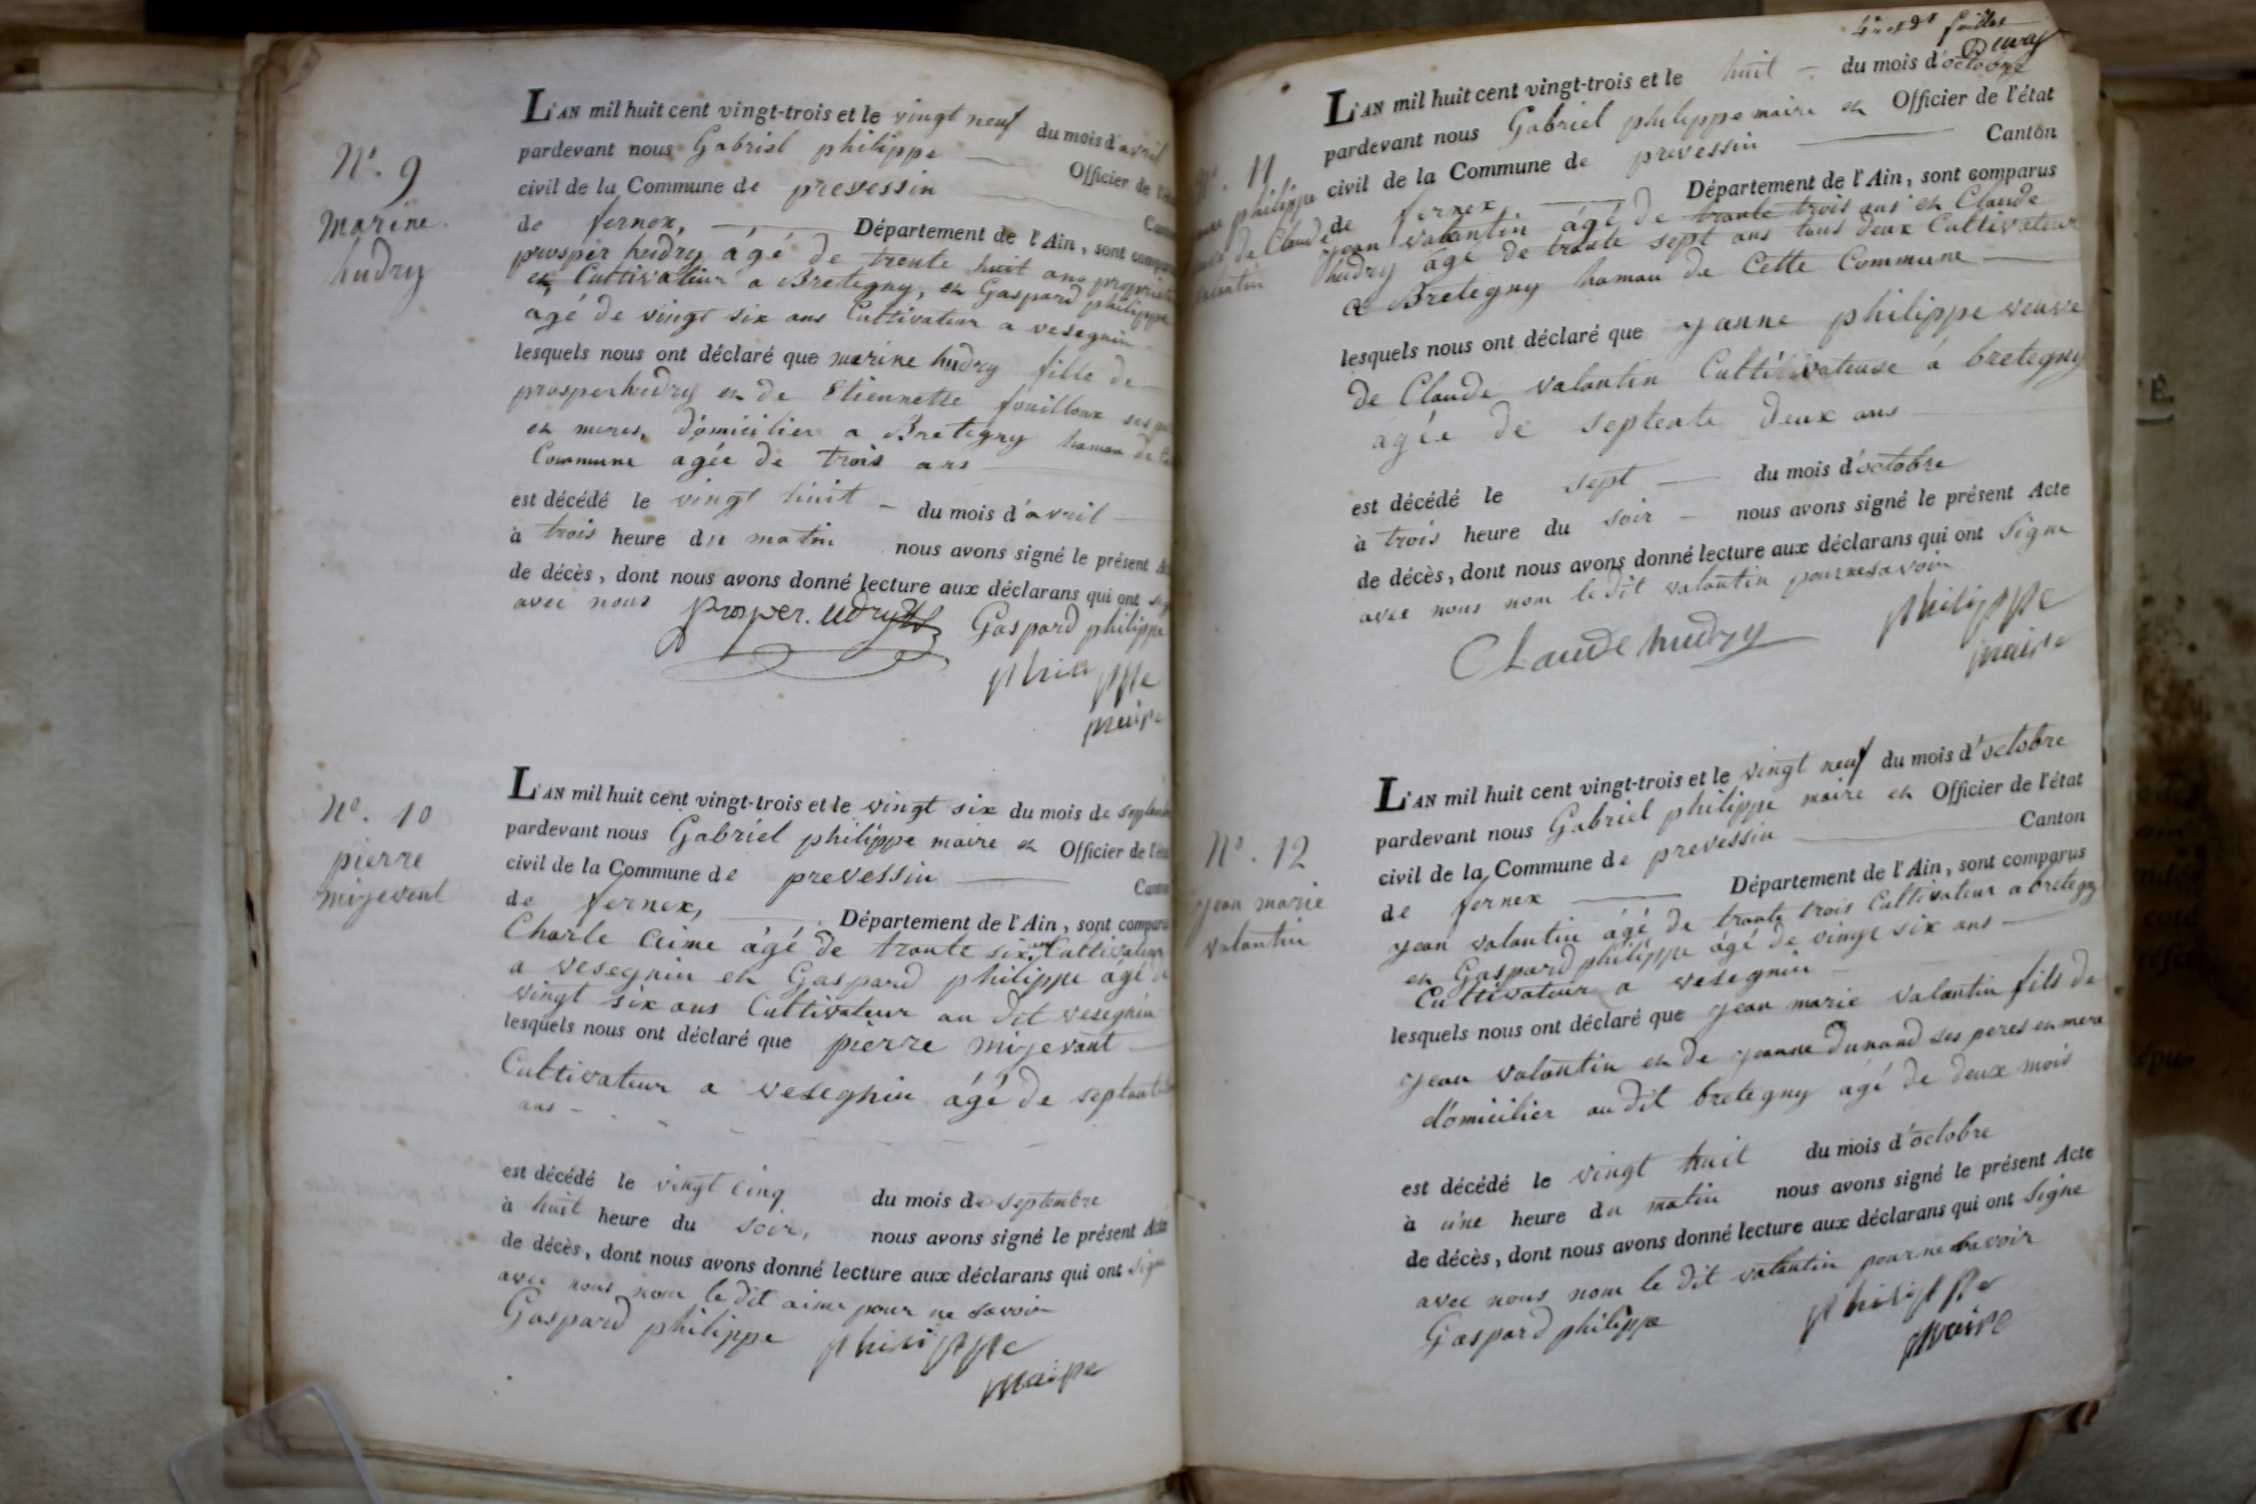 N°. 9
marine
hudry
L'AN mil huit cent vingt-trois et le vingt neuf du mois d'avril
pardevant nous Gabriel philippe Officier de l'éta
civil de la Commune de prevessin Can
de fernex, Département de l'Ain, sont compa
prosper hudry ágé de trente huit ans propriet
en Cultivateur a Bretegny, en Gaspard philippe
agé de vingt six ans Cultivateur a vesegnin
lesquels nous ont déclaré que marine hudry fille de
prosper hudry en de Etiennette fouilloux ses
en meres, domicilier a Bretegny hamau de
Commune agée de trois ans
est décédé le vingt huit du mois d'avril
à trois heure du matin nous avons signé le présent A
de décès, dont nous avons donné lecture aux déclarans qui ont sig
avec nous prosper. udry Gaspard philippe
philippe
maire
N°. 10
pierre
mijevent
L'AN mil huit cent vingt-trois et le vingt six du mois de septemb
pardevant nous Gabriel philippe maire en Officier de l'éta
civil de la Commune de prevessin Canto
de fernex, Département de l'Ain, sont comparu
Charle aime ágé de trante six ans Cultivateur
a vesegnin en Gaspard philippe ágé d
vingt six ans Cultivateur au dit vesegnin
lesquels nous ont déclaré que pierre mijevant
Cultivateur a veseghin ágé de septante
ans
est décédé le vingt cinq du mois de septembre
à huit heure du soir, nous avons signé le présent Acte
de décès, dont nous avons donné lecture aux déclarans qui ont signe
avec nous non le dit aime pour ne savoir
Gaspard philippe philippe
maire
feuillet
N°. 11
philippe
de Claude
valentin
L'AN mil huit cent vingt-trois et le huit du mois d'octobre
pardevant nous Gabriel philippe maire en Officier de l'état
civil de la Commune de prevessin Canton
de fernex, Département de l'Ain, sont comparus
jean valantin ágé de trante trois ans en Claude
hudry agé de trante sept ans tous deux Cultivateur
a Bretegny hamau de Cette Commune
lesquels nous ont déclaré que janne philippe veuve
de Claude valantin Cultivateuse á bretegny
ágée de septente deux ans
est décédé le sept du mois d'octobre
à trois heure du soir nous avons signé le présent Acte
de décès, dont nous avons donné lecture aux déclarans qui ont signe
avec nous non le dit valantin pour ne savoir
Claude hudry philippe
maire
N°. 12
jean marie
valantin
L'AN mil huit cent vingt-trois et le vingt neuf du mois d'octobre
pardevant nous Gabriel philippe maire en Officier de l'état
civil de la Commune de prevessin Canton
de fernex Département de l'Ain, sont comparus
jean valantin ágé de trante trois Cultivateur a bretegny
en Gaspard philippe ágé de vingt six ans
Cultivateur a vesegnin
lesquels nous ont déclaré que jean marie valantin fils de
jean valantin en de jeanne dunand ses peres en mere
domicilier au dit bretegny ágé de deux mois
est décédé le vingt huit du mois d'octobre
à une heure du matin nous avons signé le présent Acte
de décès, dont nous avons donné lecture aux déclarans qui ont signe
avec nous non le dit valantin pour ne savoir
Gaspard philippe philippe
maire